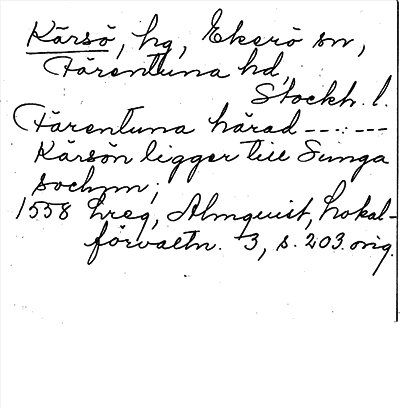 Kärsö, hg, Ekerö sn,
Färentuna hd,
Stockh. l.
Färentuna härad --:---
Kärsön ligger till Sunga
sochnn;
1558 hreg, Almquist, Lokal-
förvaltn. 3, s. 203. orig.